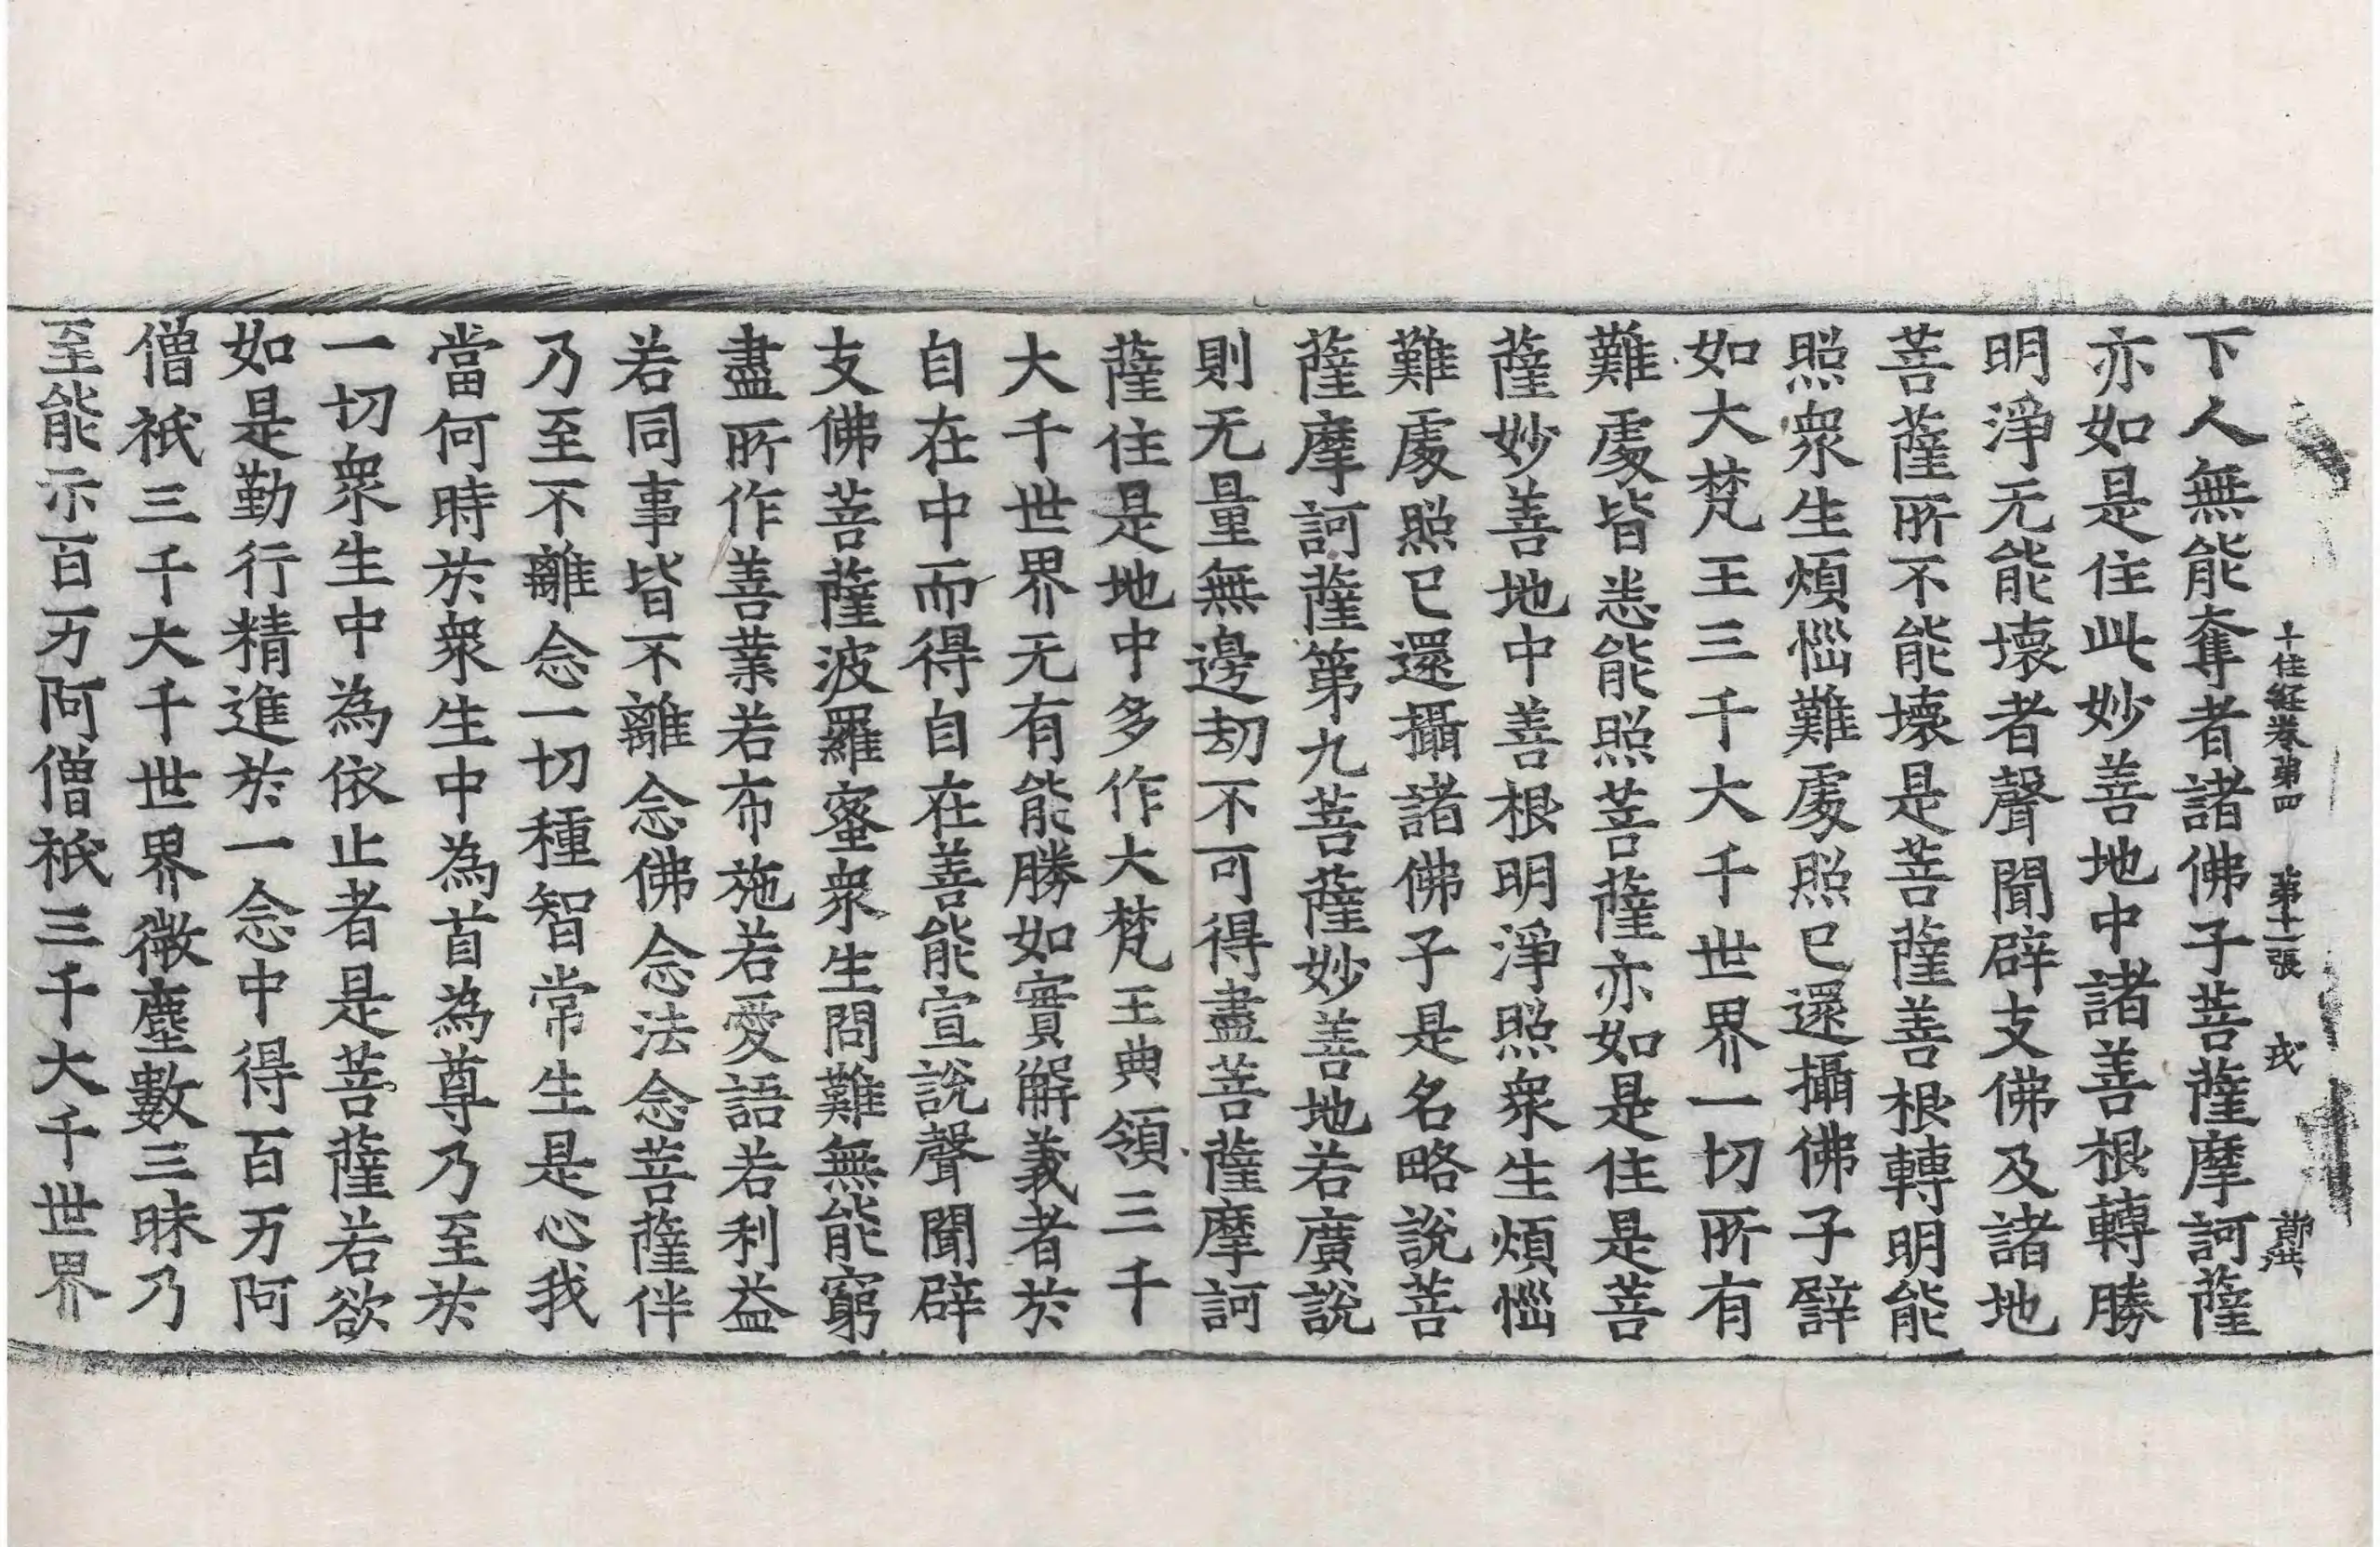 十住經卷第四 第十二張 戎 鄭洪
下人無能奪者諸佛子菩薩摩訶薩
亦如是住此妙善地中諸善根轉勝
明淨无能壞者聲聞辟支佛及諸地
菩薩所不能壞是菩薩善根轉明能
照衆生煩惱難處照已還攝佛子譬
如大梵王三千大千世界一切所有
難處皆悉能照菩薩亦如是住是菩
薩妙善地中善根明淨照衆生煩惱
難處照已還攝諸佛子是名略說菩
薩摩訶薩第九菩薩妙善地若廣說
則无量無邊劫不可得盡菩薩摩訶
薩住是地中多作大梵王典領三千
大千世界无有能勝如實解義者於
自在中而得自在善能宣說聲聞辟
支佛菩薩波羅蜜衆生問難無能窮
盡所作善業若布施若愛語若利益
若同事皆不離念佛念法念菩薩伴
乃至不離念一切種智常生是心我
當何時於衆生中為首為尊乃至於
一切衆生中為依止者是菩薩若欲
如是勤行精進於一念中得百万阿
僧祇三千大千世界微塵數三昧乃
至能示百万阿僧祇三千大千世界